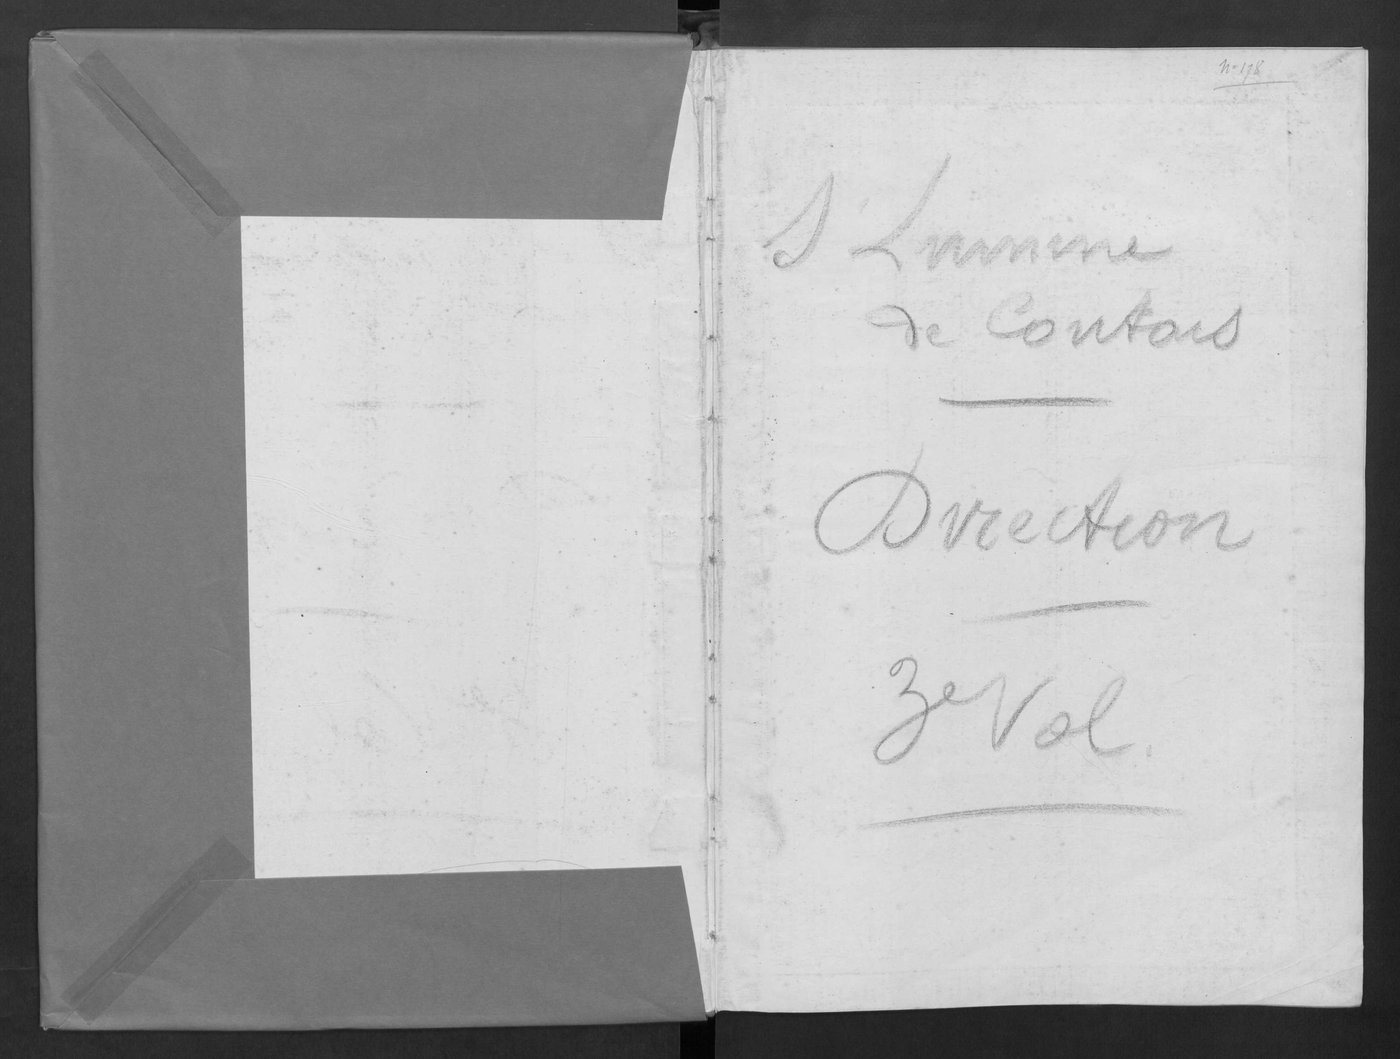 No 178
St Lumine
de Coutais
Direction
3e Vol.